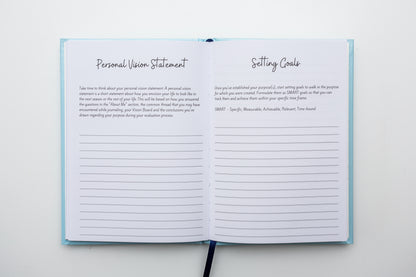 Personal Vision Statement
Take time to think about your personal vision statement. A personal
vision statement is a short statement about how you envision your life to look like in
the next season or the rest of your life. This will be based on how you answered
the questions in the "About Me" section, the common thread that you may have
encountered while journaling, your Vision Board and the conclusions you've
drawn regarding your purpose during your evaluation process.
Setting Goals
Once you've established your purpose(s), start setting goals to walk in the purpose
for which you were created. Formulate them as SMART goals so that you can
track them and achieve them within your specific time frame.
SMART - Specific, Measurable, Achievable, Relevant, Time-bound